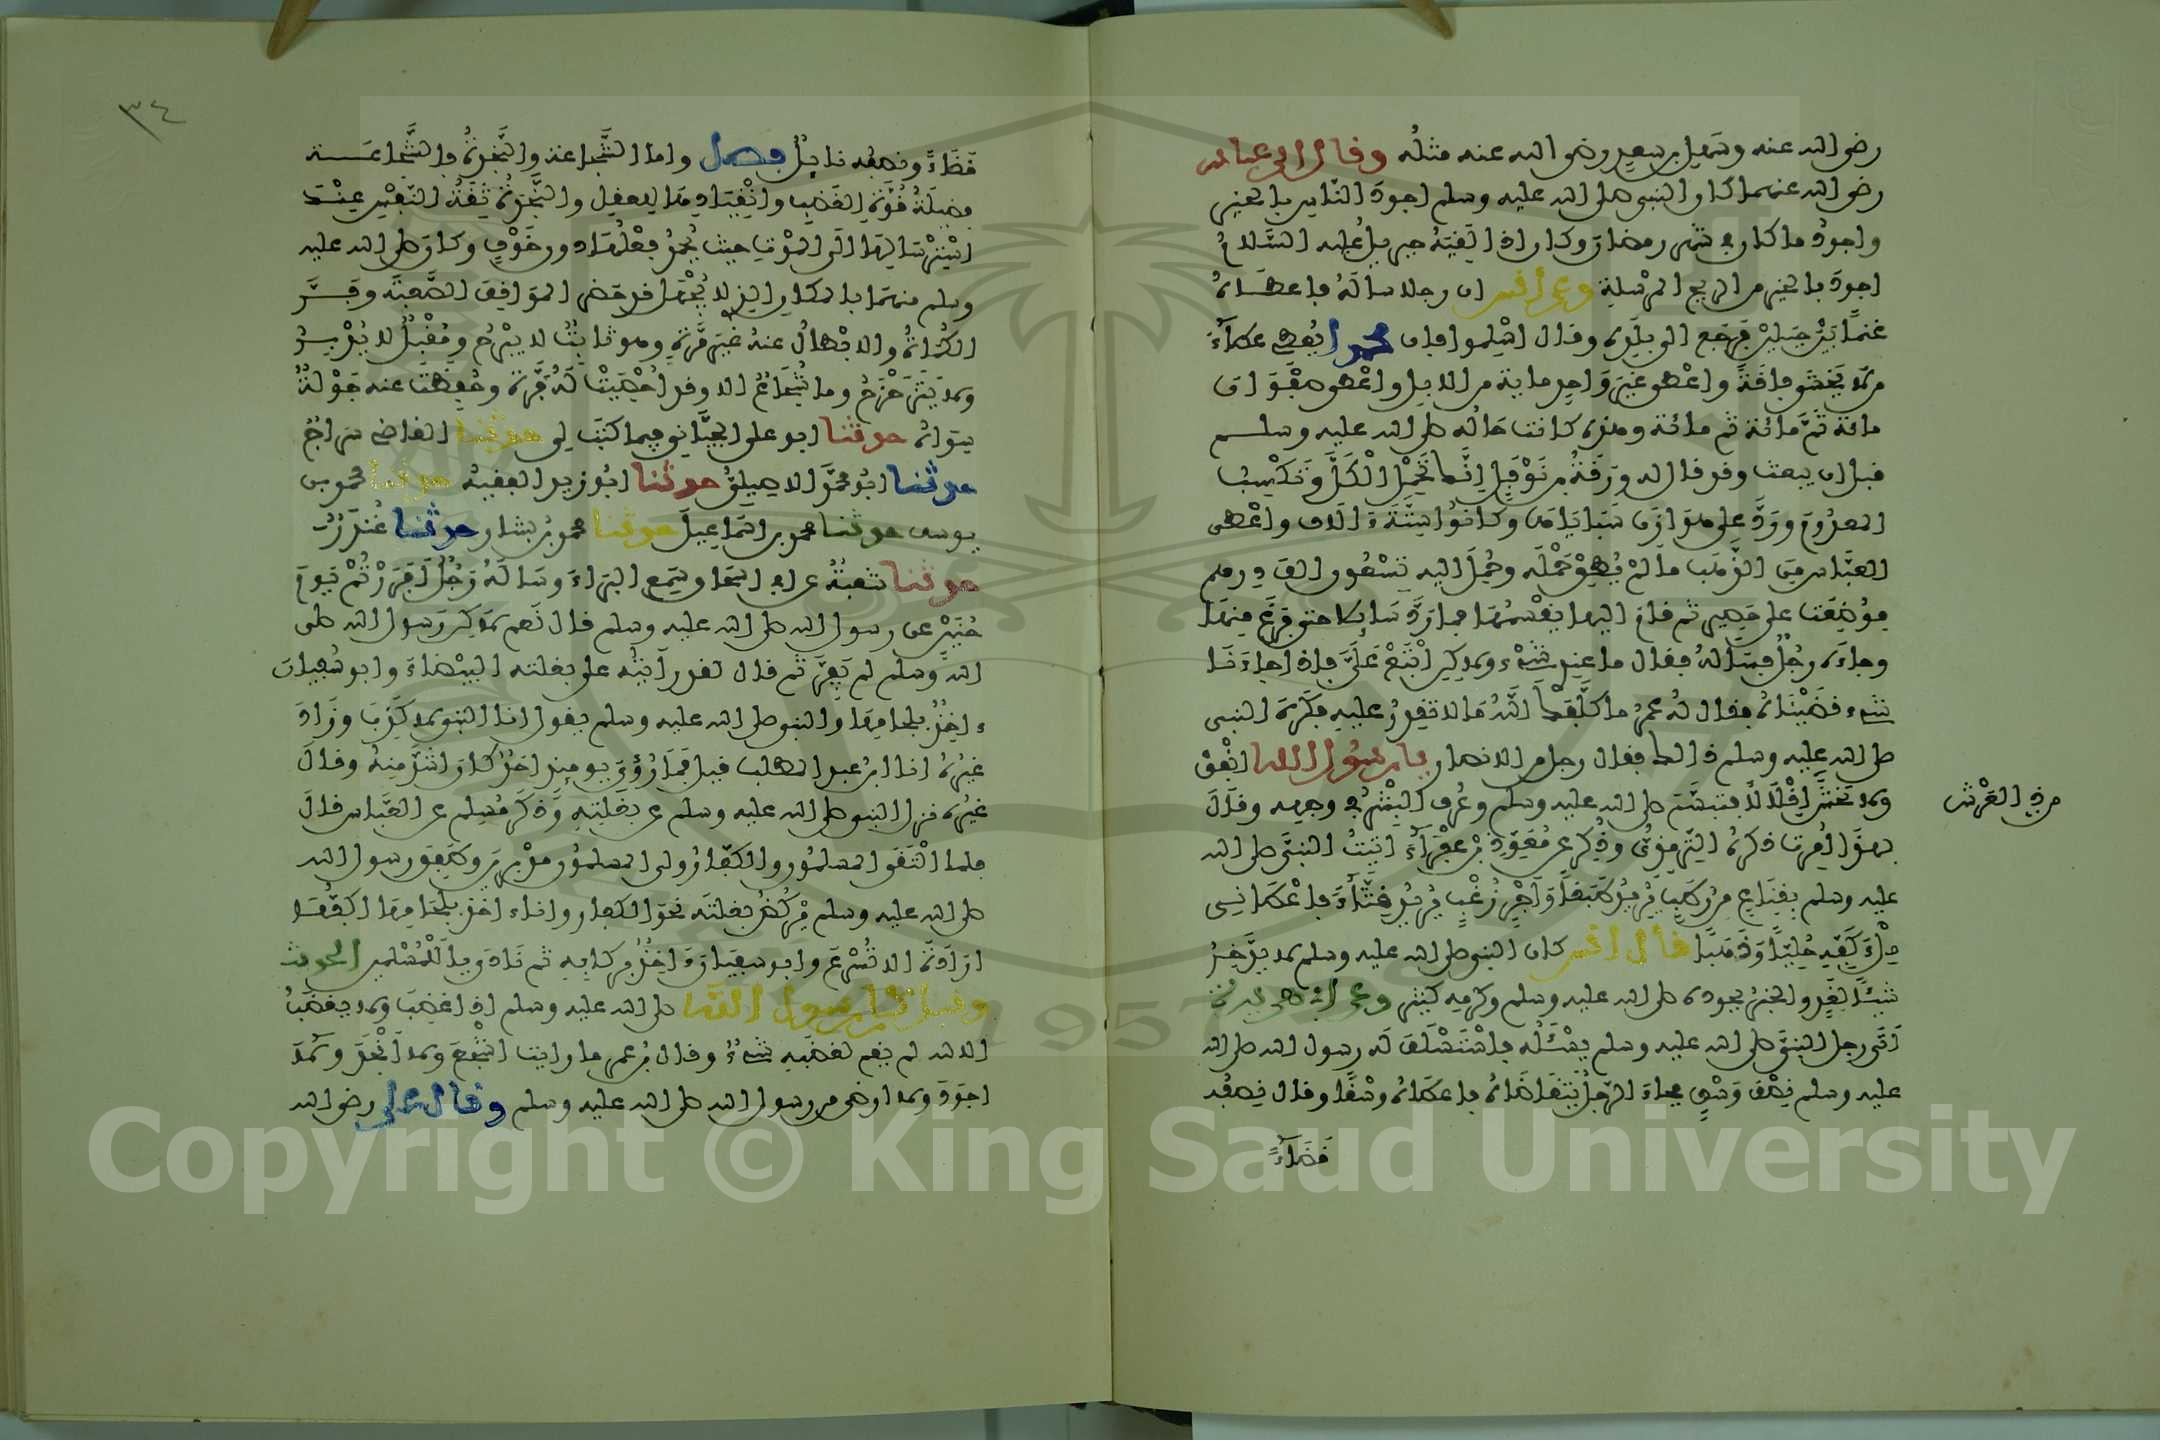 رضى الله عنه وسهل بن سعد رضى الله عنه مثله وقال ابن عباس
رضى الله عنهما كان النبى صلى الله عليه وسلم اجود الناس بالخير
واجود ما كان فى شهر رمضان وكان اذا لقيه جبريل عليه السلام
اجود بالخير من الريح المرسلة وعن أنس ان رجلا سأله فاعطاه
غنما بين جبلين فرجع الى بلده وقال اسلموا فإن محمدا يعطى عطاء
من لا يخشى فاقة واعطى غير واحد ماية من الابل واعطى صفوان
مائة ثم مائة ثم مائة وهذه كانت حاله صلى الله عليه وسلم
قبل ان يبعث وقد قال له ورقة بن نوفل إنك تحمل الكل وتكسب
المعدوم ورد على هوازن سباياهن وكانوا ستة ءالاف واعطى
العباس من الذهب ما لم يطق حمله وحمل اليه تسعون الف درهم
فوضعت على حصير ثم قام اليها يقسمها فما رد سائلا حتى فرغ منها
وجاءه رجل فسأله فقال ما عندى شىء ولاكن ابتع على فاذا جاءنا
شىء قضيناه فقال له عمر ما كلفك الله ما لا تقدر عليه فكره النبى
صلى الله عليه وسلم ذالك فقال رجل من الانصار يا رسول الله انفق
ولا تخش إقلالا فتبسم صلى الله عليه وسلم وعرف البشر فى وجهه وقال
بهذا امرت ذكره الترمذى وذكر عن معوذ بن عفراء اتيت النبى صلى الله
عليه وسلم بقناع من رطب يريد طبقا وأجر زغب يريد قثاء فاعطانى
ملء كفيه حليا وذهبا قال أنس كان النبى صلى الله عليه وسلم لا يدخر
شيئا لغد والخبر بجوده صلى الله عليه وسلم وكرمه كثير وعن ابى هريرة
أتى رجل النبى صلى الله عليه وسلم يسئله فاستسلف له رسول الله صلى الله
عليه وسلم نصف وسق فجاء الرجل يتقاضاه فاعطاه وسقا وقال نصفه
قضاء
من ذى العرش
٣٤
قضاء ونصفه نايل فصل واما الشجاعة والنجدة فالشجاعة
فضيلة قوة الغضب وانقيادها للعقل والنجدة ثقة النفس عند
استرسالها الى الموت حيث يحمد فعلها دون خوف وكان صلى الله عليه
وسلم منهما بالمكان الذى لا يجهل قد حضر المواقف الصعبة وفر
الكماة والابطال عنه غير مرة وهو ثابت لا يبرح ومقبل لا يدبر
ولا يتزحزح وما شجاع الا وقد احصيت له فرة وحفظت عنه جولة
سواه حدثنا ابو على الجيانى فيما كتب لى حدثنا القاضى سراج
حدثنا ابو محمد الاصيلى حدثنا ابو زيد الفقيه حدثنا محمد بن
يوسف حدثنا محمد بن اسماعيل حدثنا محمد بن بشار حدثنا غندر
حدثنا شعبة عن ابى اسحاق سمع البراء وسأله رجل أفررتم يوم
حنين عن رسول الله صلى الله عليه وسلم قال نعم لاكن رسول الله صلى
الله وسلم لم يفر ثم قال لقد رأيته على بغلته البيضاء وابو سفيان
ءاخذ بلجامها والنبى صلى الله عليه وسلم يقول انا النبى لا كذب وزاد
غيره انا ابن عبد المطلب قيل فما رؤى يومئذ احد كان اشد منه وقال
غيره نزل النبى صلى الله عليه وسلم عن بغلته وذكر مسلم عن العباس قال
فلما التقى المسلمون والكفار ولى المسلمون مدبرين وطفق رسول الله
صلى الله عليه وسلم يركض بغلته نحو الكفار وانا ءاخذ بلجامها اكفها
ارادة الا تسرع وابو سفيان ءاخذ بركابه ثم نادى يا للمسلمين الحديث
وقيل كان رسول الله صلى الله عليه وسلم اذا غضب ولا يغضب
الا لله لم يقم لغضبه شىء وقال بن عمر ما رايت اشجع ولا انجد ولا
اجود ولا ارضى من رسول الله صلى الله عليه وسلم وقال على رضى الله